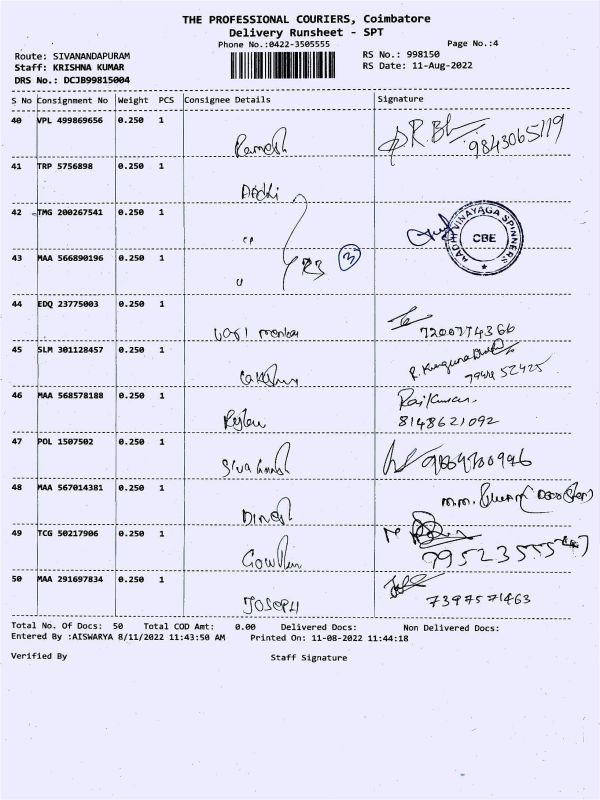 THE PROFESSIONAL COURIERS, Coimbatore
Delivery Runsheet - SPT
Phone No.:0422-3505555
Page No.:4
Route: SIVANANDAPURAM
Staff: KRISHNA KUMAR
DRS No.: DCJB99815004
RS No.: 998150
RS Date: 11-Aug-2022
S No Consignment No Weight PCS Consignee Details Signature
40 VPL 499869656 0.250 1
Ramesh
9843065119
41 TRP 5756898 0.250 1
42 TMG 200267541 0.250 1
MADHU VINAYAGA SPINNERS
CBE
43 MAA 566890196 0.250 1
3
44 EDQ 23775003 0.250 1
7200774366
45 SLM 301128457 0.250 1
46 MAA 568578188 0.250 1
Rajkumar
8148621092
47 POL 1507502 0.250 1
48 MAA 567014381 0.250 1
Dinesh
49 TCG 50217906 0.250 1
50 MAA 291697834 0.250 1
JOSEPH
7397571463
Total No. Of Docs: 50 Total COD Amt: 0.00 Delivered Docs: Non Delivered Docs:
Entered By :AISWARYA 8/11/2022 11:43:50 AM Printed On: 11-08-2022 11:44:18
Verified By Staff Signature